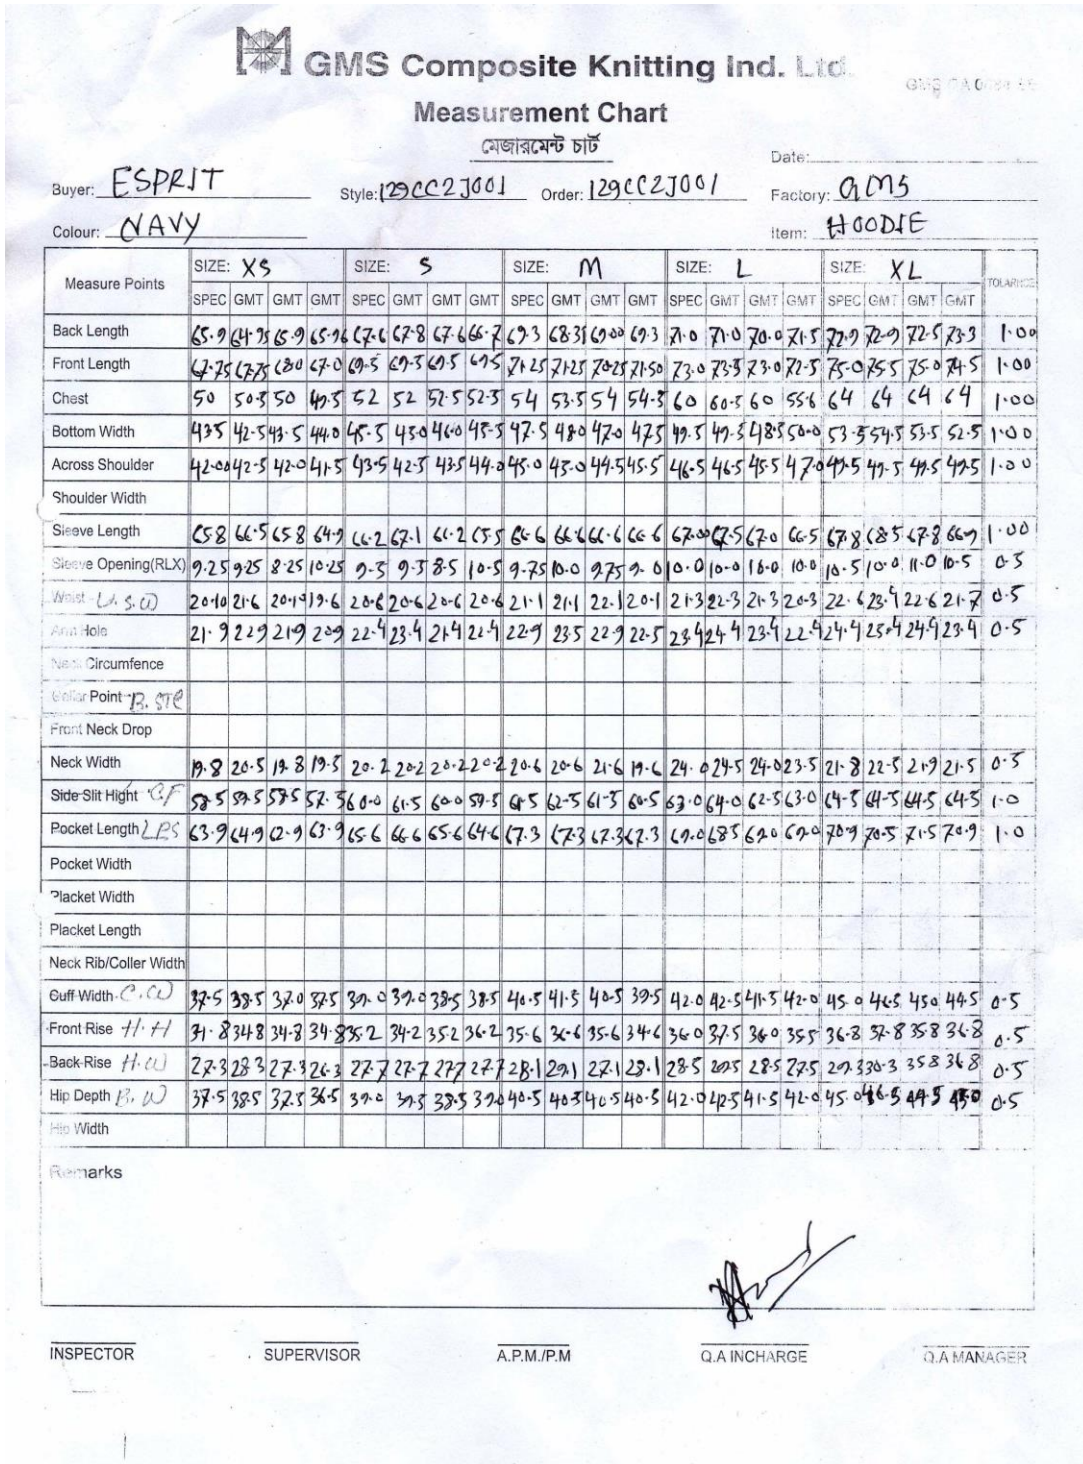 GMS Composite Knitting Ind. Ltd.
Measurement Chart
মেজারমেন্ট চার্ট
Date:
Buyer: ESPRIT Style: 129CC2J001 Order: 129CC2J001 Factory: GMS
Colour: NAVY Item: HOODIE
Measure Points SIZE: XS SIZE: S SIZE: M SIZE: L SIZE: XL TOLARNCE
SPEC GMT GMT GMT SPEC GMT GMT GMT SPEC GMT GMT GMT SPEC GMT GMT GMT SPEC GMT GMT GMT
Back Length 65.9 64.95 65.9 65.96 67.6 67.8 67.6 66.7 69.3 68.31 69.00 69.3 71.0 71.0 70.0 71.5 72.9 72.9 72.5 73.3 1.00
Front Length 67.75 67.75 68.0 67.0 69.5 69.5 69.5 69.5 71.25 71.25 70.25 71.50 73.0 73.5 73.0 72.5 75.0 75.5 75.0 74.5 1.00
Chest 50 50.5 50 49.5 52 52 52.5 52.5 54 53.5 54 54.5 60 60.5 60 55.6 64 64 64 64 1.00
Bottom Width 43.5 42.5 43.5 44.0 45.5 45.0 46.0 45.5 47.5 48.0 47.0 47.5 49.5 49.5 48.5 50.0 53.5 54.5 53.5 52.5 1.00
Across Shoulder 42.00 42.5 42.0 41.5 43.5 42.5 43.5 44.0 45.0 45.0 44.5 45.5 46.5 46.5 45.5 47.0 49.5 49.5 49.5 49.5 1.00
Shoulder Width
Sleeve Length 65.8 66.5 65.8 64.9 66.2 67.1 66.2 65.5 66.6 66.6 66.6 66.6 67.00 67.5 67.0 66.5 67.8 68.5 67.8 66.9 1.00
Sleeve Opening(RLX) 9.25 9.25 8.25 10.25 9.5 9.5 8.5 10.5 9.75 10.0 9.75 9.0 10.0 10.0 10.0 10.0 10.5 10.0 11.0 10.5 0.5
Waist U.S.W 20.10 21.6 20.10 19.6 20.6 20.6 20.6 20.6 21.1 21.1 22.1 20.1 21.3 22.3 21.3 20.3 22.6 23.4 22.6 21.7 0.5
Arm Hole 21.9 22.9 21.9 20.9 22.4 23.4 21.4 22.4 22.9 23.5 22.9 22.5 23.4 24.4 23.4 22.4 24.4 25.4 24.4 23.4 0.5
Neck Circumfence
Collar Point B. STC
Front Neck Drop
Neck Width 19.8 20.5 19.8 19.5 20.2 20.2 20.2 20.2 20.6 20.6 21.6 19.6 24.0 24.5 24.0 23.5 21.8 22.5 21.9 21.5 0.5
Side Slit Hight C.F 58.5 59.5 58.5 57.5 60.0 61.5 60.0 59.5 61.5 62.5 61.5 60.5 63.0 64.0 62.5 63.0 64.5 64.5 64.5 64.5 1.0
Pocket Length LPS 63.9 64.9 62.9 63.9 65.6 66.6 65.6 64.6 67.3 67.3 67.3 67.3 69.0 68.5 69.0 69.0 70.9 70.5 71.5 70.9 1.0
Pocket Width
Placket Width
Placket Length
Neck Rib/Coller Width
Cuff Width C.W 37.5 38.5 37.0 37.5 39.0 39.0 38.5 38.5 40.5 41.5 40.5 39.5 42.0 42.5 41.5 42.0 45.0 46.5 45.0 44.5 0.5
Front Rise H.H 34.8 34.8 34.8 34.8 35.2 34.2 35.2 36.2 35.6 36.6 35.6 34.6 36.0 37.5 36.0 35.5 36.8 37.8 35.8 36.8 0.5
Back Rise H.W 27.3 28.3 27.3 26.3 27.7 27.7 27.7 27.7 28.1 29.1 27.1 28.1 28.5 29.5 28.5 27.5 29.3 30.3 35.8 36.8 0.5
Hip Depth B.W 37.5 38.5 37.5 36.5 39.0 39.5 38.5 39.0 40.5 40.5 40.5 40.5 42.0 42.5 41.5 42.0 45.0 46.5 44.5 45.0 0.5
Hip Width
Remarks
INSPECTOR SUPERVISOR A.P.M./P.M Q.A INCHARGE Q.A MANAGER